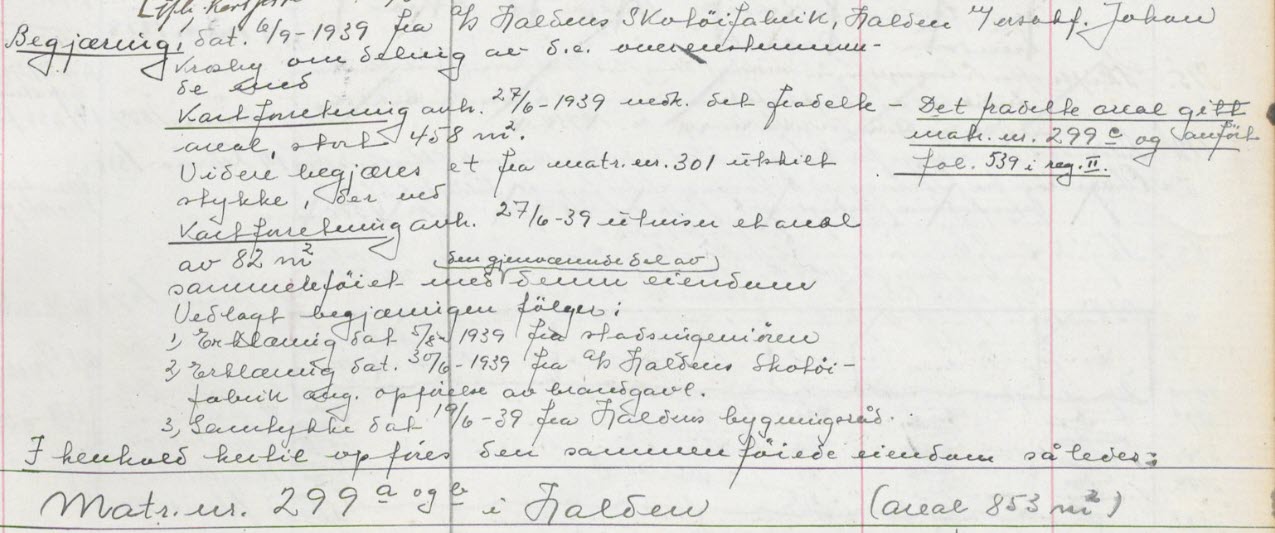 Begjæring, dat. 6/9-1939 fra A/S Haldens Skotöifabrik, Halden v/ersakf. Johan
Krosby om deling av d.e. overenstemmen-
de med
Kartforretning avh. 27/6-1939 vedk. det fradelte -
areal, stort 458 m².
Videre begjæres et fra matr. nr. 301 utskilt
stykke, der ved
Kartforretning avh. 27/6-39 utviser et areal
av 82 m²
den gjenværende del av
sammenföiet med denne eiendom
Vedlagt begjæringen fölger:
1, Erklæring dat 5/8- 1939 fra stadsingeniören
2, Erklæring dat. 30/6-1939 fra A/S Haldens Skotöi-
fabrik ang. opförelse av brandgavl.
3, Samtykke dat 19/6-39 fra Haldens bygningsråd.
Det fradelte areal gitt
matr. nr. 299 c og anfört
fol. 539 i reg. II.
I henhold hertil opföres den sammenföiede eiendom således:
Matr. nr. 299 a og b i Halden (areal 853 m²)